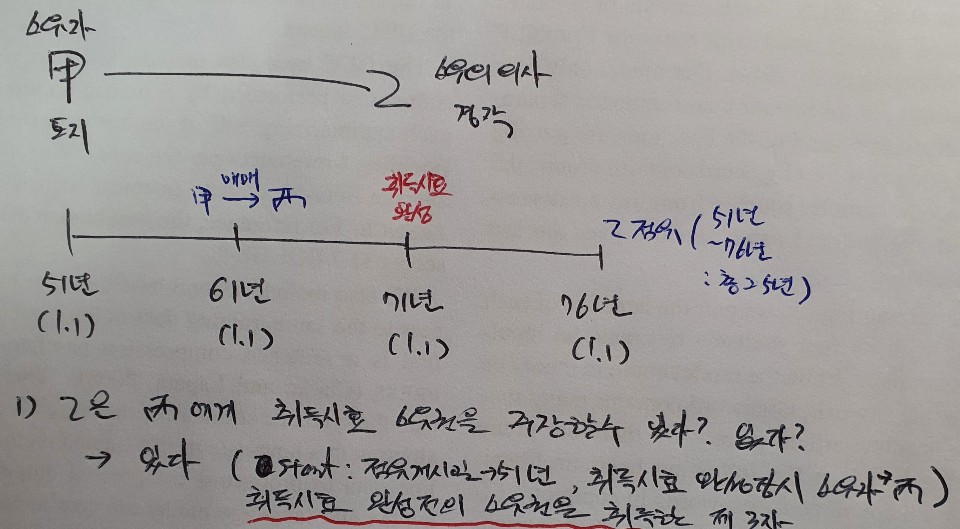 소유자
甲 → 乙 소유의 의사
토지 경작
甲 매매→ 丙
취득시효
완성
乙 점유 (51년
~76년
: 총25년)
51년 61년 71년 76년
(1.1) (1.1) (1.1) (1.1)
1) 乙은 丙에게 취득시효 소유권을 주장할수 있다? 없다?
→ 있다 (start : 점유개시일→51년, 취득시효 완성당시 소유자→丙)
취득시효 완성전의 소유권을 취득한 제3자